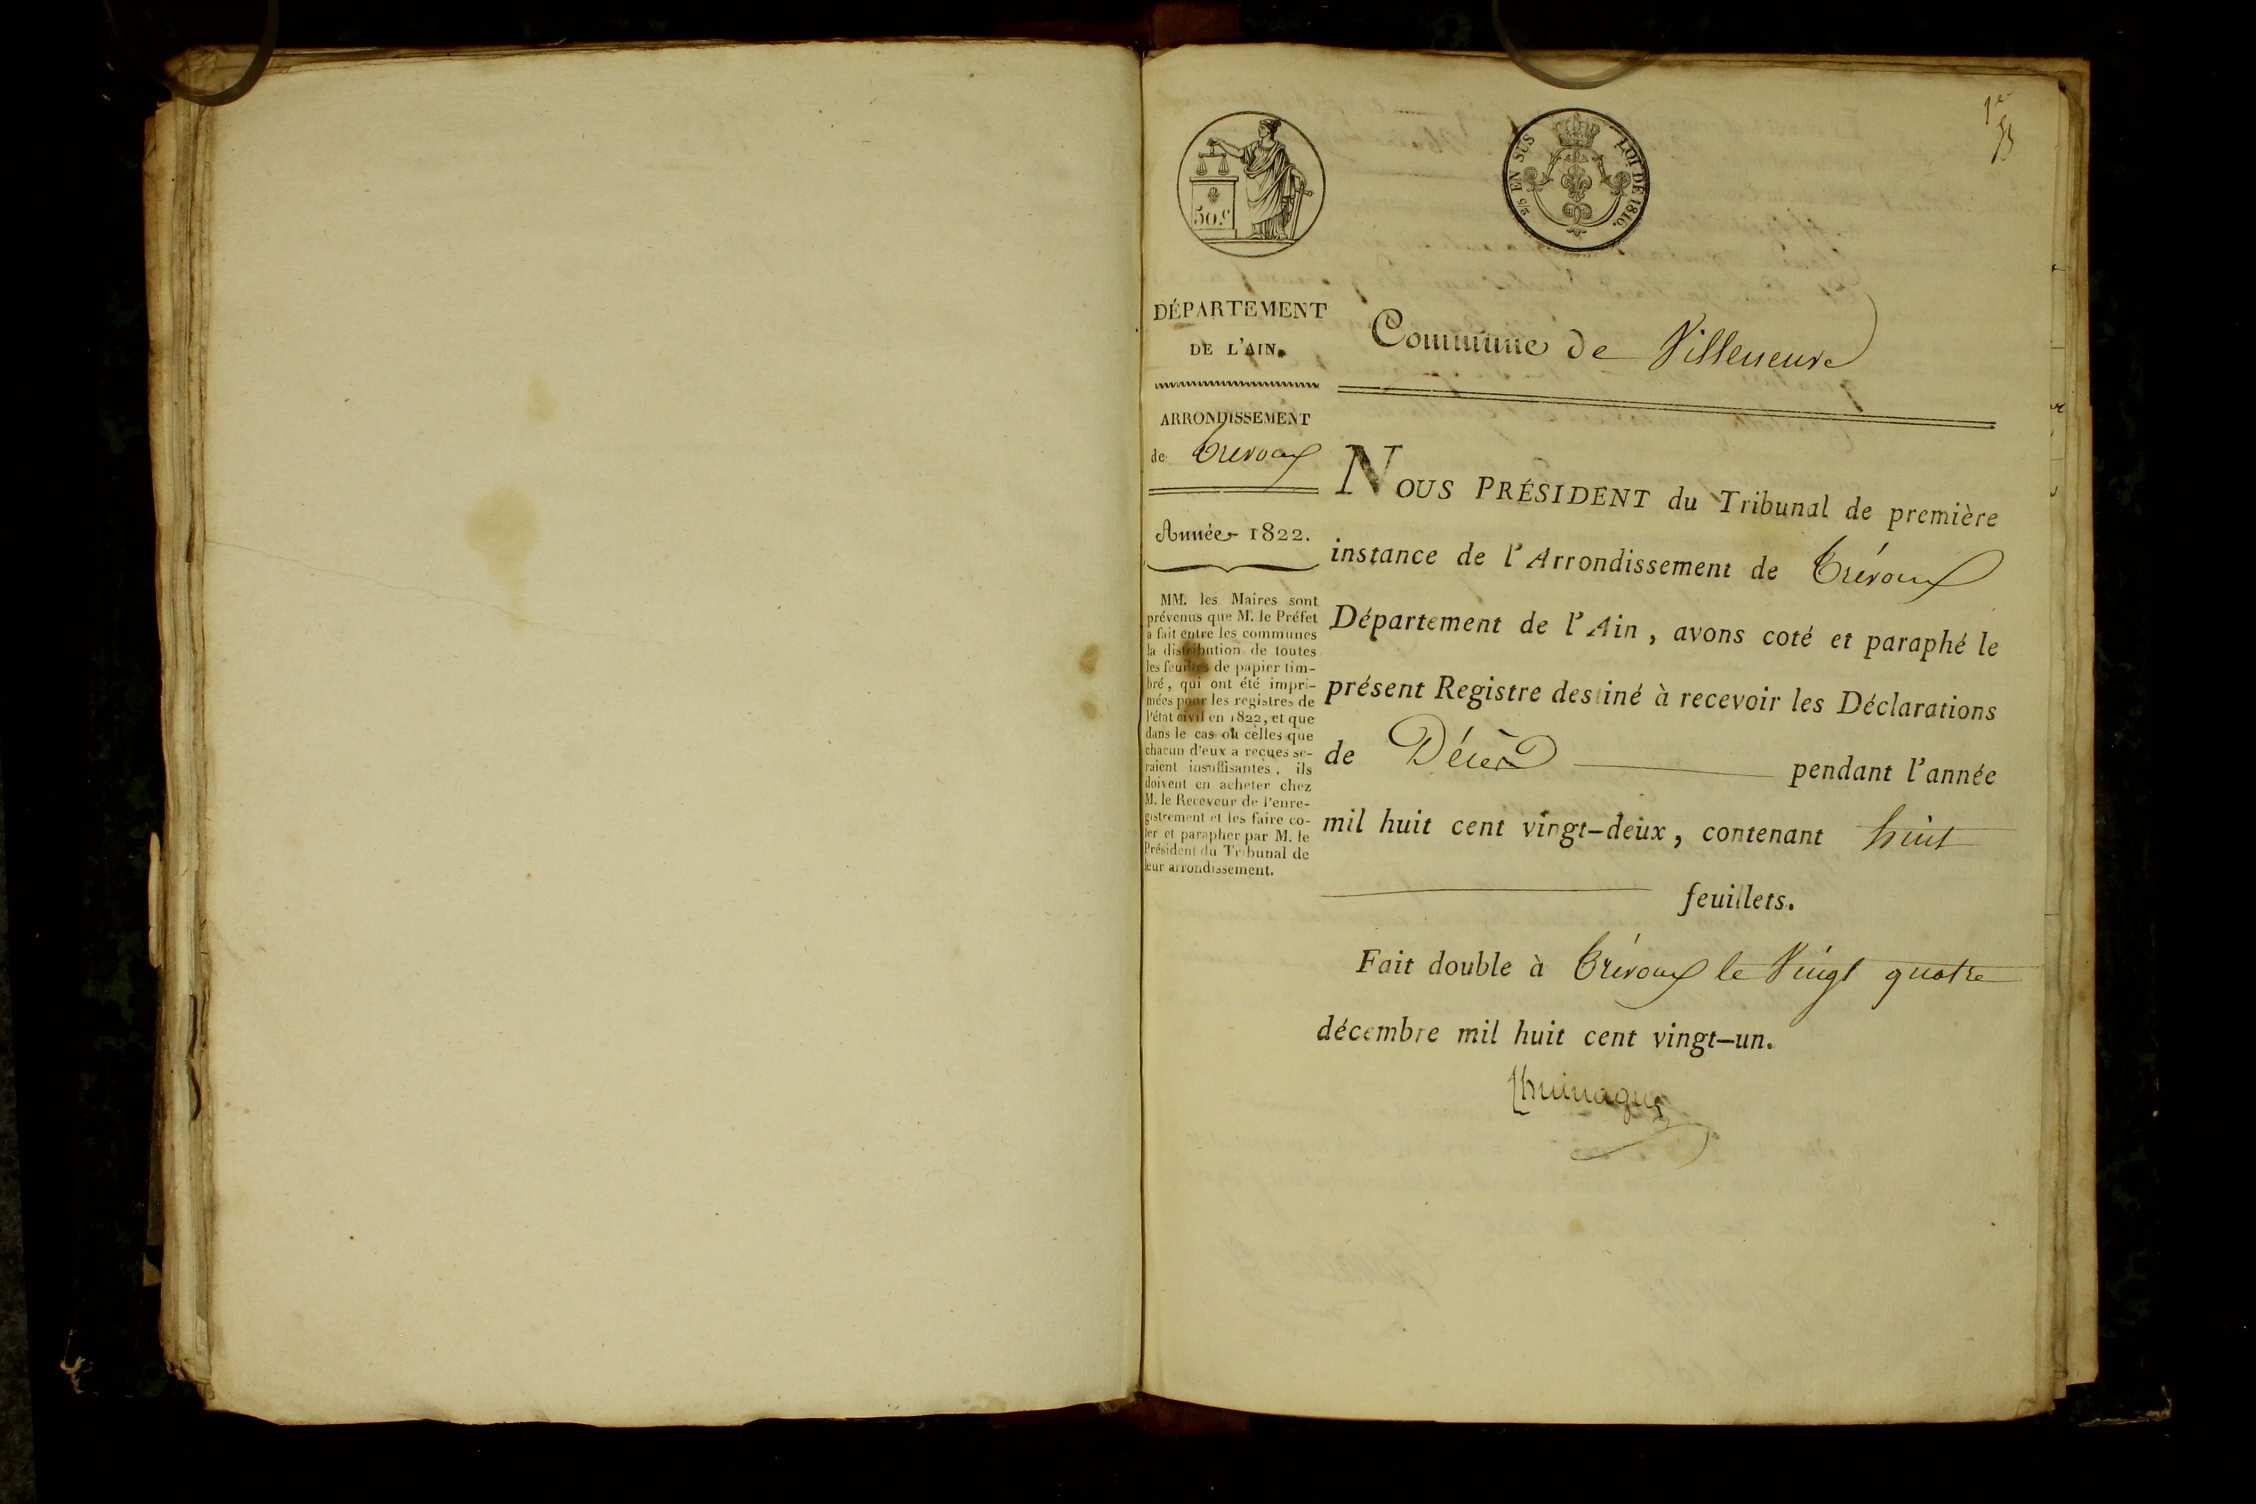 1er
50.c
2/5 EN SUS
LOI DE 1816.
DÉPARTEMENT
DE L'AIN.
ARRONDISSEMENT
de Trevoux
Année 1822.
MM. les Maires sont
prévenus que M. le Préfet
a fait entre les communes
la distribution de toutes
les feuilles de papier tim-
bré, qui ont été impri-
mées pour les registres de
l'état civil en 1822, et que
dans le cas où celles que
chacun d'eux a reçues se-
raient insuffisantes, ils
doivent en acheter chez
M. le Receveur de l'enre-
gistrement et les faire co-
ter et parapher par M. le
Président du Tribunal de
leur arrondissement.
Commune de Villeneuve
NOUS PRÉSIDENT du Tribunal de première
instance de l'Arrondissement de Trévoux
Département de l'Ain, avons coté et paraphé le
présent Registre destiné à recevoir les Déclarations
de Décès pendant l'année
mil huit cent vingt-deux, contenant huit
feuillets.
Fait double à Trévoux le Vingt quatre
décembre mil huit cent vingt-un.